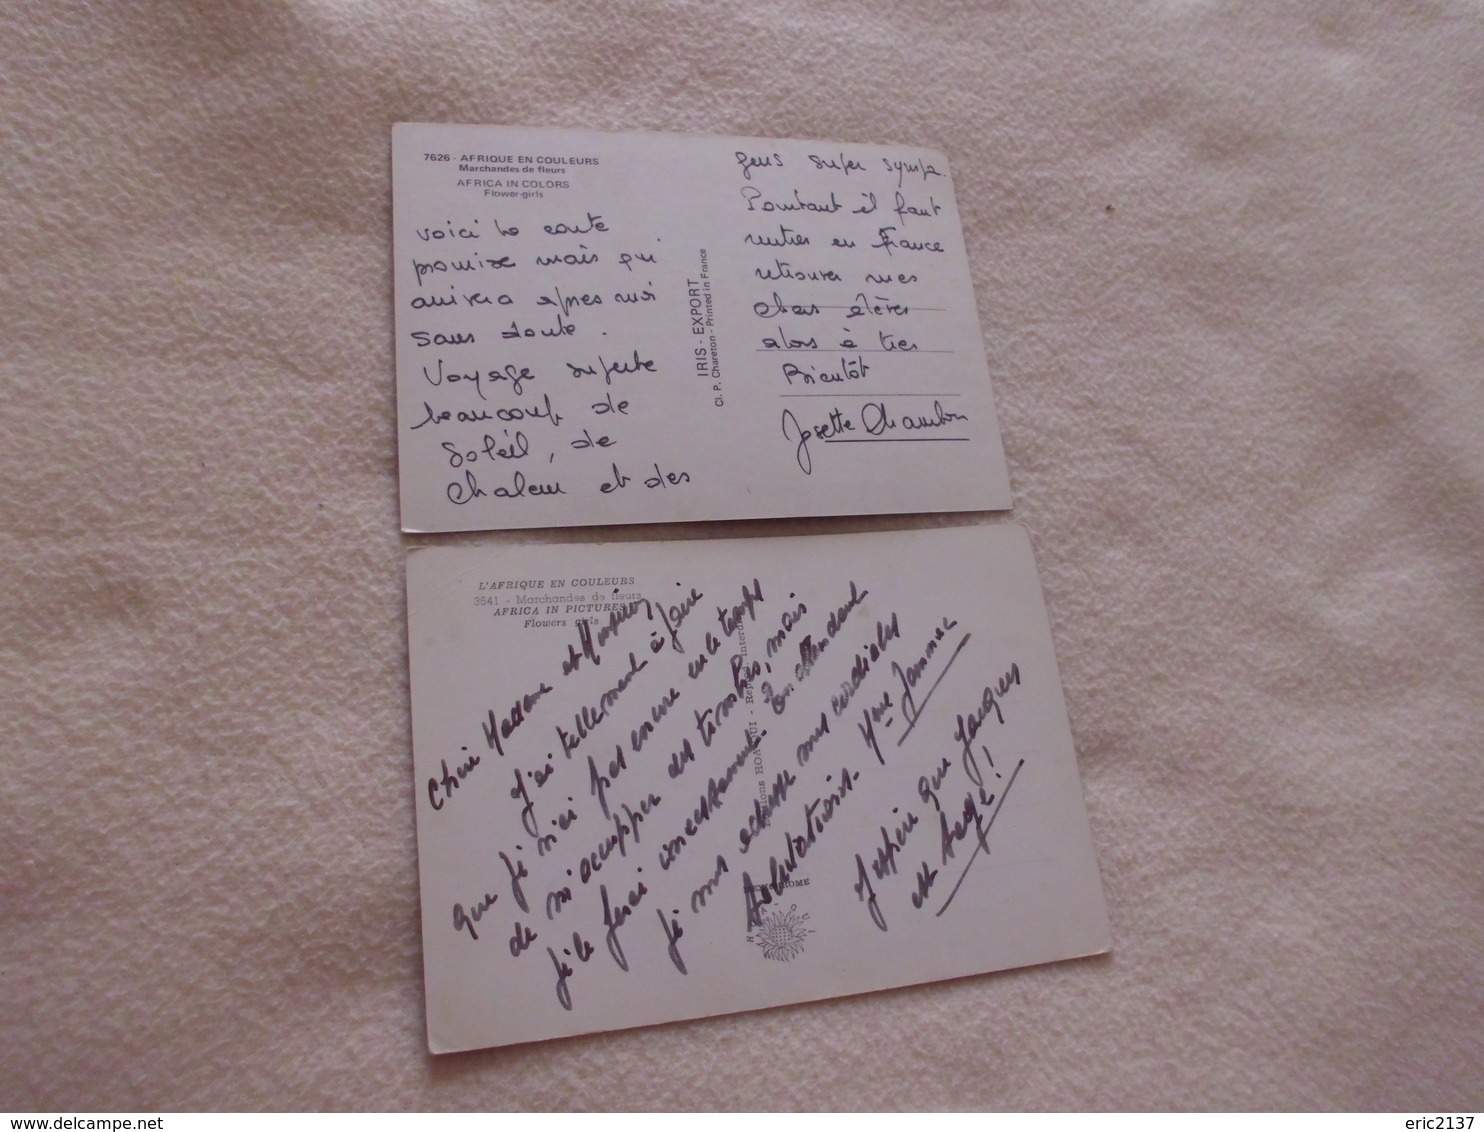 7626 - AFRIQUE EN COULEURS
Marchandes de fleurs
AFRICA IN COLORS
Flower-girls
Voici la carte
promise mais qui
arrivera après moi
sans doute.
Voyage superbe
beaucoup de
Soleil, de
Chaleur et des
IRIS - EXPORT
Cl. P. Chareton - Printed in France
gens super sympa.
Pourtant il faut
rentrer en France
retrouver mes
chers élèves
alors à très
Bientôt
Josette Chambon
L'AFRIQUE EN COULEURS
3641 - Marchandes de fleurs
AFRICA IN PICTURES
Flowers girls
Chère Madame et Monsieur
J'ai tellement à faire
que je n'ai pas encore eu le temps
de m'occuper des timbres, mais
je le ferai incessament. En attendant
je vous adresse mes cordiales
Salutations. Mme
J'espère que Jacques
est sage!
HOA-QUI - Reprod. interdite
eric2137